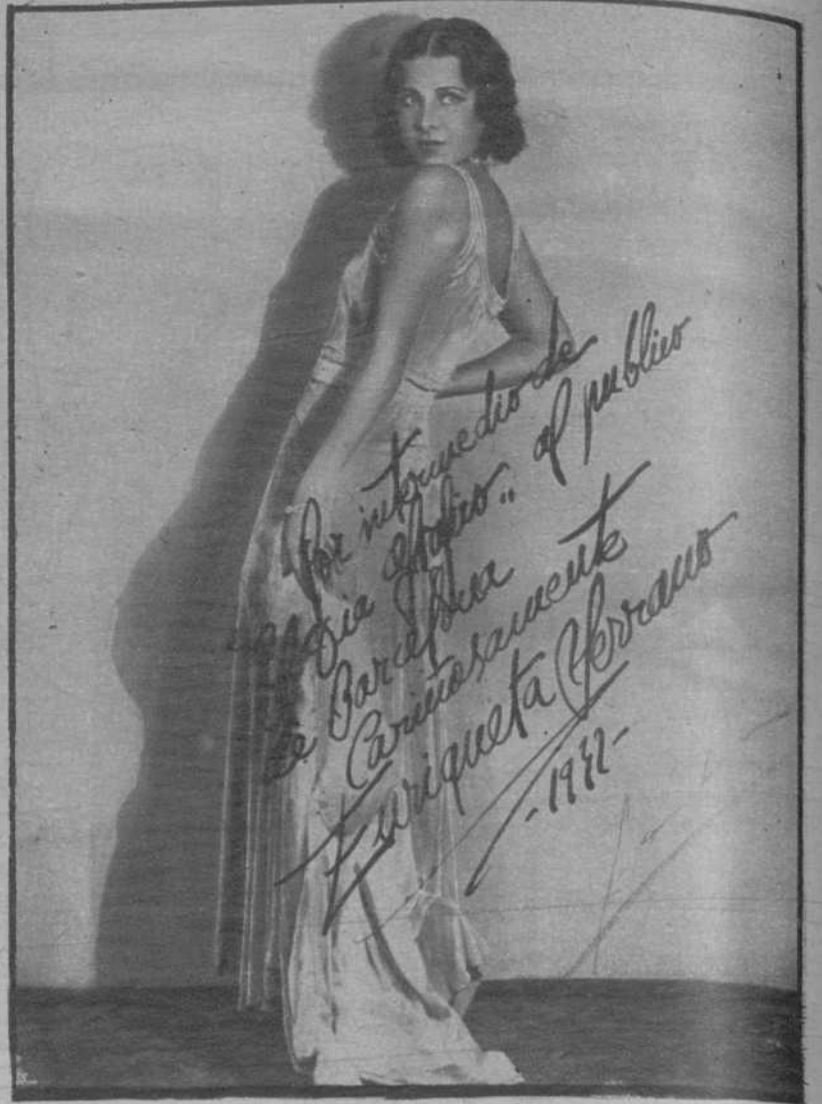 Por intermedio de
al publico
de Barcelona
Cariñosamente
Enriqueta Serrano
-1932-